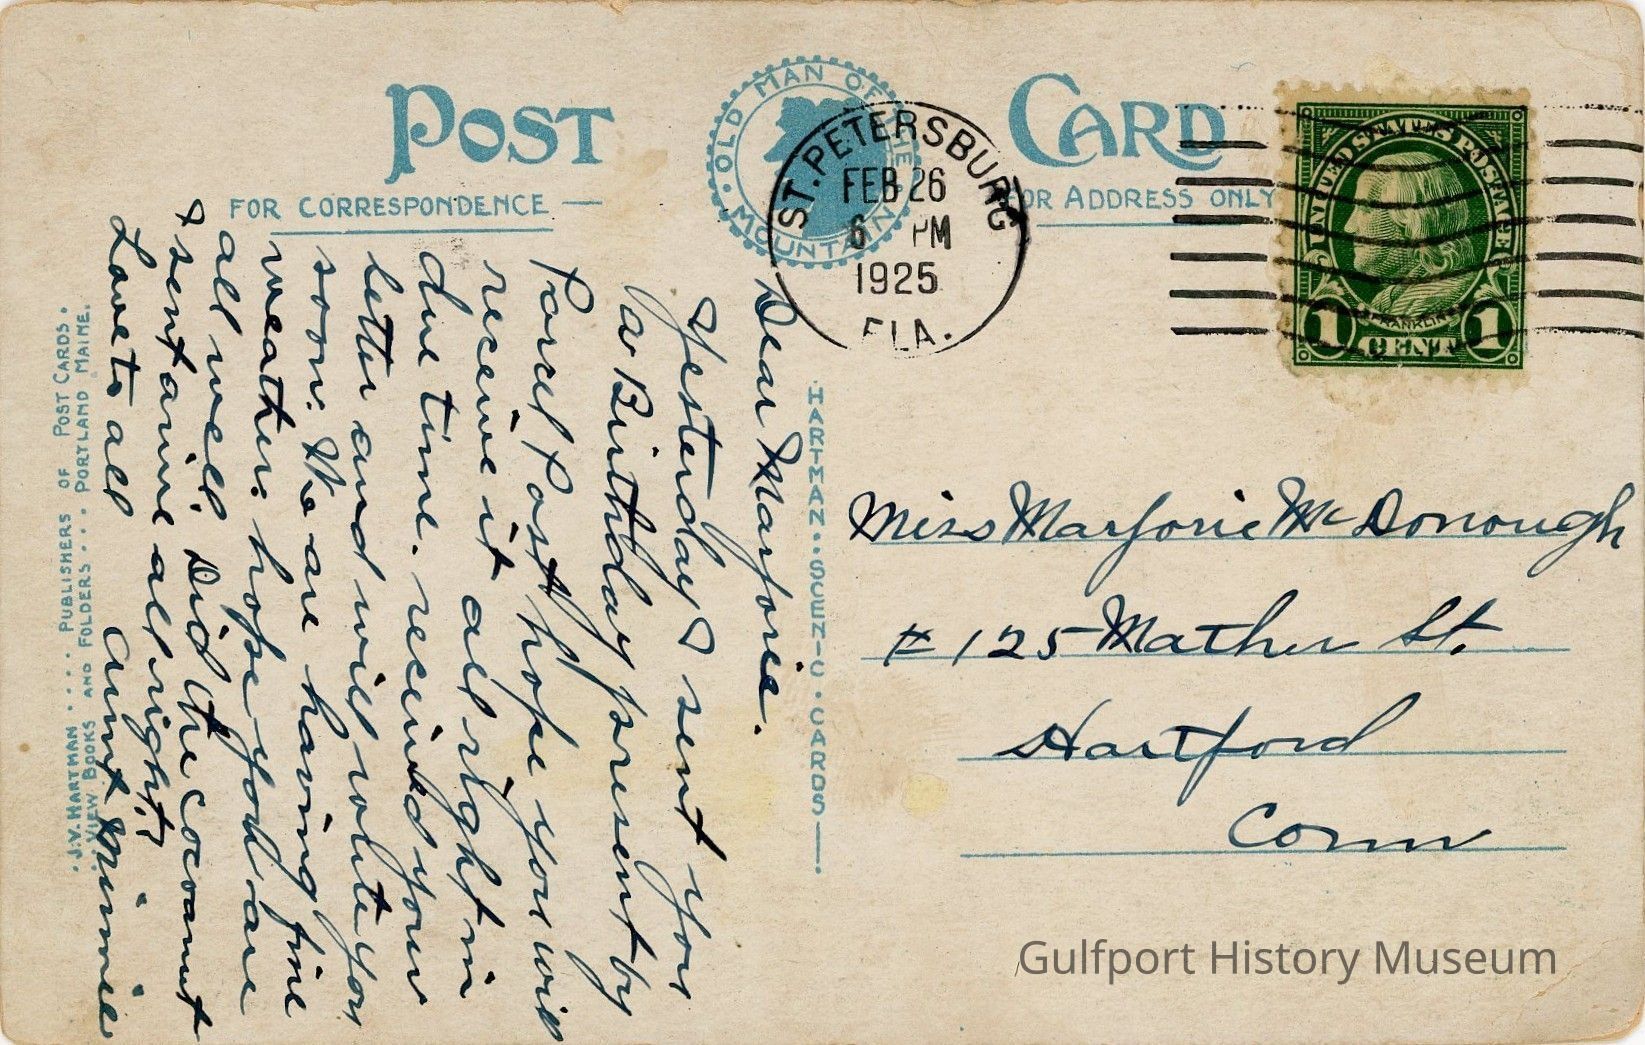 POST CARD
FOR CORRESPONDENCE
OLD MAN OF THE MOUNTAIN
FOR ADDRESS ONLY
ST. PETERSBURG
FEB 26
6 PM
1925
FLA.
UNITED STATES POSTAGE
FRANKLIN
1 CENT 1
Dear Marjorie.
Yesterday I sent you
a Birthday present by
Parcel Post hope you will
receive it all right in
due time. received your
letter and will write you
soon. We are having fine
weather: hope you are
all well. Did the cocoanut
I sent arrive all right?
Love to all Aunt Minnie
HARTMAN·SCENIC·CARDS
J.V. HARTMAN .... PUBLISHERS OF POST CARDS.
VIEW BOOKS AND FOLDERS... PORTLAND MAINE.
Miss Marjorie McDonough
# 125 Mather St.
Hartford
Conn
Gulfport History Museum